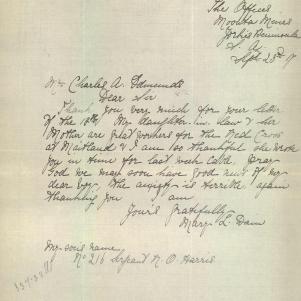 The Office
Moonta Mines
Yorkes Peninsula
S. A
Sept 25th 17
Mr Charles A. Edmunds
Dear Sir
Thank you very much for your letter
of the 18th. My daughter-in-law & her
Mother are great workers for the Red Cross
at Maitland & I am so thankful she wrote
you in time for last week Cable. Pray
God we may soon have good news of my
dear boy, the anxiety is terrible again
thanking you I am
Yours gratefully
Mary L. Dawe
My sons name
No 216 Sergeant N. O. Harris